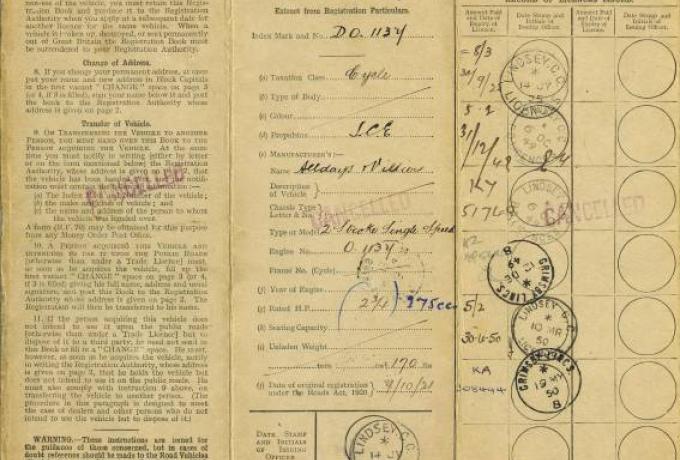 ness of the vehicle, you must return this Regis-
tration Book and procure it to the Registration
Authority when you apply at a subsequent date for
another licence for the same vehicle. When a
vehicle is broken up, destroyed, or sent permanently
out of Great Britain the Registration Book must
be surrendered to your Registration Authority.
Change of Address.
8. If you change your permanent address, at once
put your name and new address in Block Capitals
in the first vacant "CHANGE" space on page 3
(or 4, if 3 is filled), sign your name below it and post
the book to the Registration Authority whose
address is given on page 2.
Transfer of Vehicle.
9. ON TRANSFERRING THE VEHICLE TO ANOTHER
PERSON, YOU MUST HAND OVER THIS BOOK TO THE
PERSON ACQUIRING THE VEHICLE. At the same
time you must notify in writing (either by letter
or on the form mentioned below) the Registration
Authority, whose address is given on page 2, that
the vehicle has been
notification must contain
(a) The Index Number of the vehicle;
(b) the make and of vehicle; and
(c) the name and address of the person to whom
the vehicle was handed over.
CANCELLED
A form (R.F. 70) may be obtained for this purpose
from any Money Order Post Office.
10. A PERSON ACQUIRING THE VEHICLE AND
INTENDING TO USE IT UPON THE PUBLIC ROADS
[otherwise than under a Trade Licence] must,
as soon as he acquires the vehicle, fill up the
first vacant "CHANGE" space on page 3 (or 4,
if 3 is filled) giving his full name, address and usual
signature, and post this Book to the Registration
Authority whose address is given on page 2. The
Registration will then be transferred to his name.
11. If the person acquiring this vehicle does
not intend to use it upon the public roads
[otherwise than under a Trade Licence] but to
dispose of it to a third party, he need not send in
this Book or fill in a "CHANGE" space. He must,
however, as soon as he acquires the vehicle, notify
in writing the Registration Authority, whose address
is given on page 2, that he holds the vehicle but
does not intend to use it on the public roads. He
must also comply with instruction 9 above, on
transferring the vehicle to another person. (The
procedure in this paragraph is designed to meet
the case of dealers and other persons who do not
intend to use the vehicle but to dispose of it.)
WARNING.—These instructions are issued for
the guidance of those concerned, but in cases of
doubt reference should be made to the Road Vehicles
Extract from Registration Particulars.
Index Mark and No. DO. 1137
(a) Taxation Class Cycle
(b) Type of Body
(c) Colour
(d) Propulsion I.C.E
(e) MANUFACTURER'S:—
Name Alldays
Description
of Vehicle
Chassis Type
Letter & No.
CANCELLED
Type or Model 2 Stroke Single Speed
Engine No. O. 1137
Frame No. (Cycle)
(f) Year of Engine
(g) Rated H.P. 2¾ 275cc
(h) Seating Capacity
(i) Unladen Weight
tons cwt 170 lbs
(j) Date of original registration
under the Roads Act, 1920 9/10/21
DATE STAMP
AND
INITIALS
OF ISSUING
OFFICER
LINDSEY. C.C.
14 JY
Amount Paid
and Date of
Expiry of
Licence.
Date Stamp and
Initials of
Issuing Officer.
Amount Paid
and Date of
Expiry of
Licence.
Date Stamp and
Initials of
Issuing Officer.
= 8/3
30/9/25
LINDSEY. C.C.
14 JY
25
LICENCES
5. 2
31/12/49
6 OC
LICENCES
KY
51746
LINDSEY
CANCELLED
GRIMSBY LINCS
8
5/2
30-6-50
LINDSEY. C.C.
10 MR
50
KA
308444
GRIMSBY LINCS
10 MR
50
8